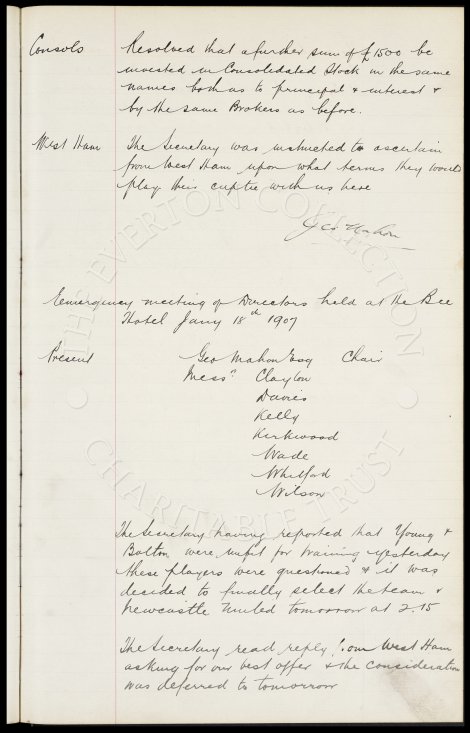 Consols Resolved that a further sum of £1500 be
invested in Consolidated Stock in the same
names both as to principal & interest &
by the same Brokers as before.
West Ham The Secretary was instructed to ascertain
from West Ham upon what terms they would
play this cuptie with us here
Geo Mahon
Emergency meeting of Directors held at the Bee
Hotel Jany 18th 1907
Present Geo Mahon Esq Chair
Messrs Clayton
Davies
Kelly
Kirkwood
Wade
Whitford
Wilson
The Secretary having reported that Young &
Bolton were unfit for training yesterday
these players were questioned & it was
decided to finally select the team v
Newcastle United tomorrow at 2.15
The Secretary read reply from West Ham
asking for our best offer & the consideration
was deferred to tomorrow
THE EVERTON COLLECTION
CHARITABLE TRUST